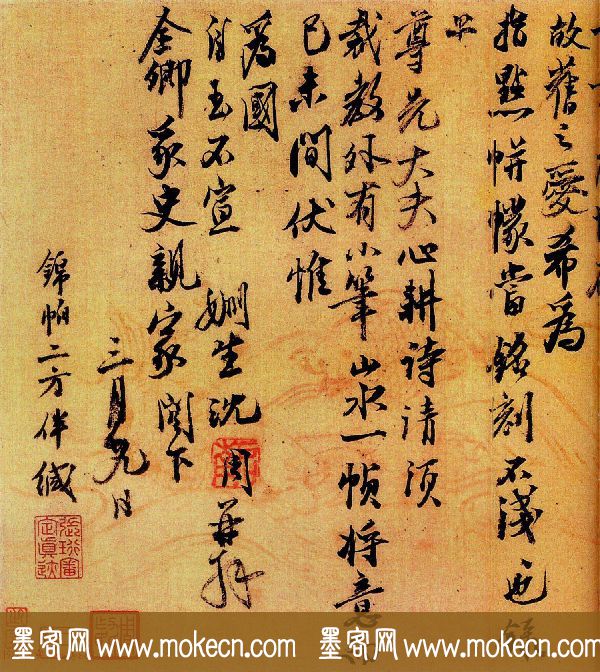 故舊之愛希爲
指點帡幪當銘刻不淺也
尊先大夫心耕詩請須
裁教外有小筆山水一幀將意
已未間伏惟
爲國
自玉不宣 姻生沈周再拜
全卿冢史親家閣下
三月九日
錦帕二方伴緘
張珩審定真迹
墨客网 www.mokecn.com 墨客网 www.mokecn.com